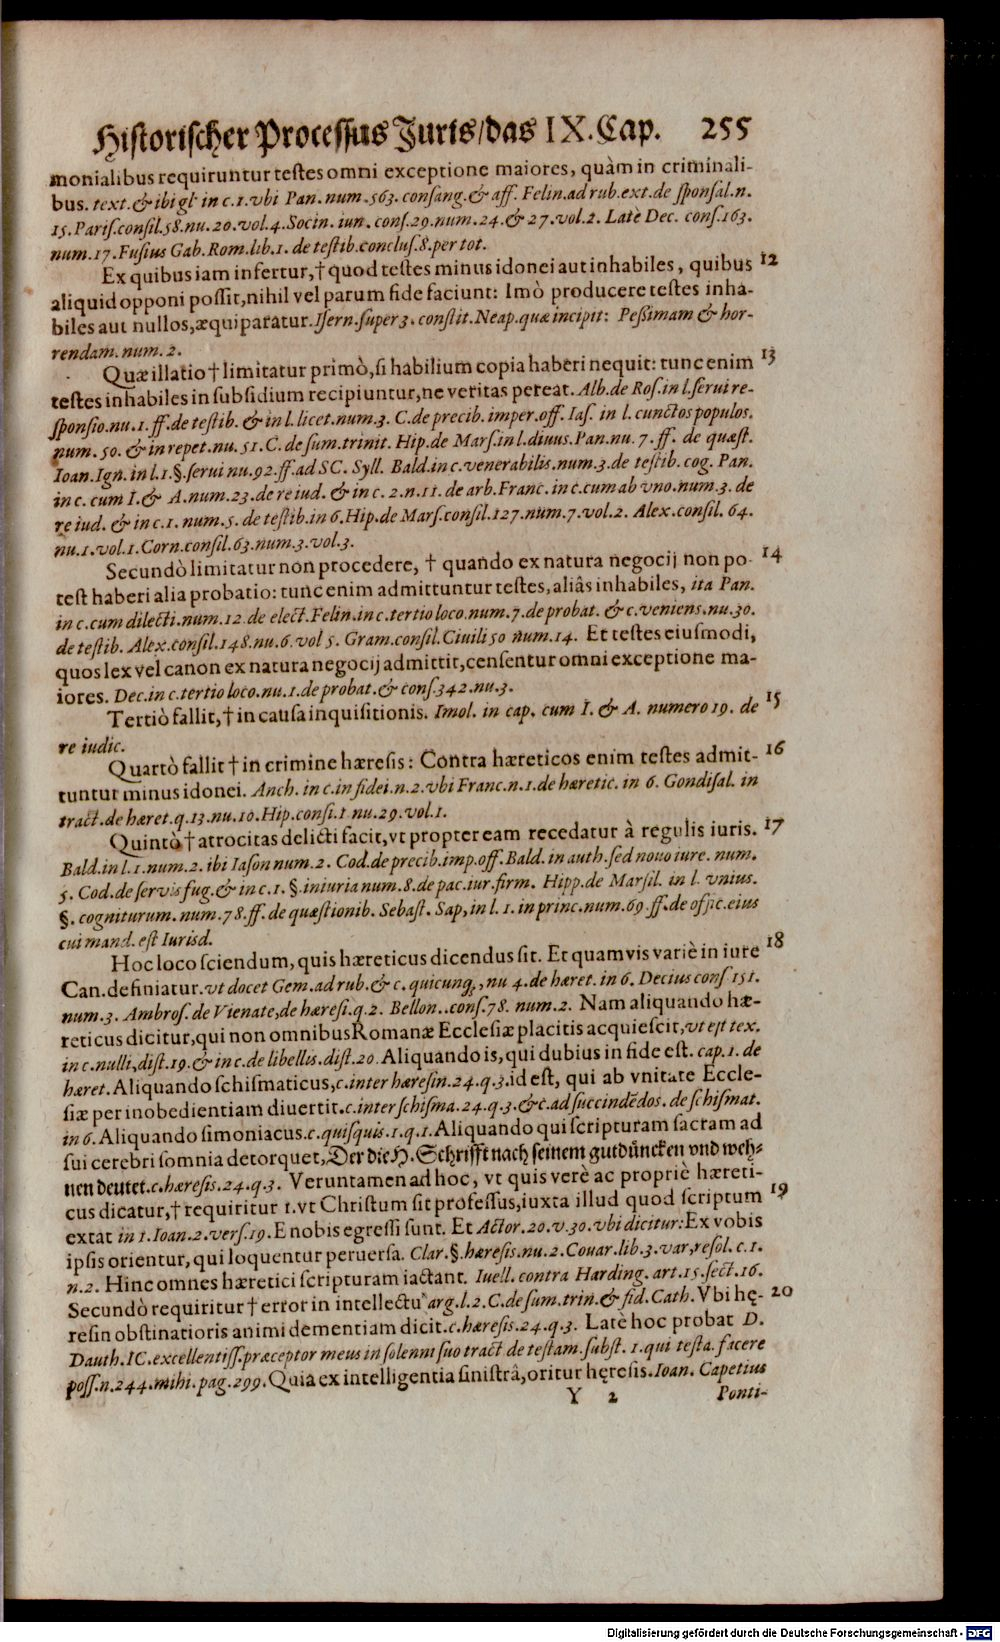 Historischer Processus Juris/das IX. Cap. 255
monialibus requiruntur testes omni exceptione maiores, quàm in criminali-
bus. text. & ibi gl in c. 1. vbi Pan. num. 563. consang. & aff. Felin. ad rub. ext. de sponsal. n.
15. Paris. consil. 58. nu. 20. vol. 4. Socin. iun. cons. 29. num. 24. & 27. vol. 2. Latè Dec. cons. 163.
num. 17. Fusius Gab. Rom. lib. 1. de testib. conclus. 8. per tot.
Ex quibus iam infertur, † quod testes minus idonei aut inhabiles, quibus 12
aliquid opponi possit, nihil vel parum fide faciunt: Imò producere testes inha-
biles aut nullos, æqui paratur. Isern. super 3. constit. Neap. quæ incipit: Peßimam & hor-
rendam. num. 2.
Quæ illatio † limitatur primò, si habilium copia haberi nequit: tunc enim 13
testes inhabiles in subsidium recipiuntur, ne veritas pereat. Alb. de Ros. in l. serui re-
sponsio. nu. 1. ff. de testib. & in l. licet. num. 3. C. de precib. imper. off. Ias. in l. cunctos populos.
num. 50. & in repet. nu. 51. C. de sum. trinit. Hip. de Mars. in l. diuus. Pan. nu. 7. ff. de quæst.
Ioan. Ign. in l. 1. §. serui nu. 92. ff. ad SC. Syll. Bald. in c. venerabilis. num. 3. de testib. cog. Pan.
in c. cum I. & A. num. 23. de re iud. & in c. 2. n. 11. de arb. Franc. in c. cum ab vno. num. 3. de
re iud. & in c. 1. num. 5. de testib. in 6. Hip. de Mars. consil. 127. num. 7. vol. 2. Alex. consil. 64.
nu. 1. vol. 1. Corn. consil. 63. num. 3. vol. 3.
Secundò limitatur non procedere, † quando ex natura negocij non po- 14
test haberi alia probatio: tunc enim admittuntur testes, aliâs inhabiles, ita Pan.
in c. cum dilecti. num. 12 de elect. Felin. in c. tertio loco. num. 7. de probat. & c. veniens. nu. 30.
de testib. Alex. consil. 148. nu. 6. vol 5. Gram. consil. Ciuili 50 num. 14. Et testes eiusmodi,
quos lex vel canon ex natura negocij admittit, censentur omni exceptione ma-
iores. Dec. in c. tertio loco. nu. 1. de probat. & cons. 342. nu. 3.
Tertiò fallit, † in causa inquisitionis. Imol. in cap. cum I. & A. numero 19. de 15
re iudic.
Quartò fallit † in crimine hæresis: Contra hæreticos enim testes admit- 16
tuntur minus idonei. Anch. in c. in fidei. n. 2. vbi Franc. n. 1. de hæretic. in 6. Gondisal. in
tract. de hæret. q. 13. nu. 10. Hip. consi. 1 nu. 29. vol. 1.
Quintò † atrocitas delicti facit, vt propter eam recedatur à regulis iuris. 17
Bald. in l. 1. num. 2. ibi Iason num. 2. Cod. de precib. imp. off. Bald. in auth. sed nouo iure. num.
5. Cod. de servis fug. & in c. 1. §. iniuria num. 8. de pac. iur. firm. Hipp. de Marsil. in l. vnius.
§. cogniturum. num. 78. ff. de quæstionib. Sebast. Sap, in l. 1. in princ. num. 69. ff. de offic. eius
cui mand. est Iurisd.
Hoc loco sciendum, quis hæreticus dicendus sit. Et quamvis variè in iure 18
Can. definiatur. vt docet Gem. ad rub. & c. quicunq;, nu 4. de hæret. in 6. Decius cons 151.
num. 3. Ambros. de Vienate, de hæresi. q. 2. Bellon.. cons. 78. num. 2. Nam aliquando hæ-
reticus dicitur, qui non omnibus Romanæ Ecclesiæ placitis acquiescit, vt est tex.
in c. nulli, dist. 19. & in c. de libellis. dist. 20. Aliquando is, qui dubius in fide est. cap. 1. de
hæret. Aliquando schismaticus, c. inter hæresin. 24. q. 3. id est, qui ab vnitate Eccle-
siæ per inobedientiam divertit. c. inter schisma. 24. q. 3. & c. ad succindēdos. de schismat.
in 6. Aliquando simoniacus. c. quisquis. 1. q. 1. Aliquando qui scripturam sacram ad
sui cerebri somnia detorquet, Der die H. Schrifft nach seinem gutdüncken vnd weh-
nen deutet. c. hæresis. 24. q. 3. Veruntamen ad hoc, vt quis verè ac propriè hæreti-
cus dicatur, † requiritur 1. vt Christum sit professus, iuxta illud quod scriptum 19
extat in 1. Ioan. 2. vers. 19. E nobis egressi sunt. Et Actor. 20. v. 30. vbi dicitur: Ex vobis
ipsis orientur, qui loquentur peruersa. Clar. §. hæresis. nu. 2. Couar. lib. 3. var, resol. c. 1.
n. 2. Hinc omnes hæretici scripturam iactant. Iuell. contra Harding. art. 15. sect. 16.
Secundò requiritur † error in intellectu arg. l. 2. C. de sum. trin. & fid. Cath. Vbi hę- 20
resin obstinatioris animi dementiam dicit. c. hæresis. 24. q. 3. Latè hoc probat D.
Dauth. IC. excellentiss. præceptor meus in solenni suo tract de testam. subst. 1. qui testa. facere
poss. n. 244. mihi. pag. 299. Quia ex intelligentia sinistrâ, oritur hęresis. Ioan. Capetius
Y 2 Ponti-
Digitalisierung gefördert durch die Deutsche Forschungsgemeinschaft - DFG